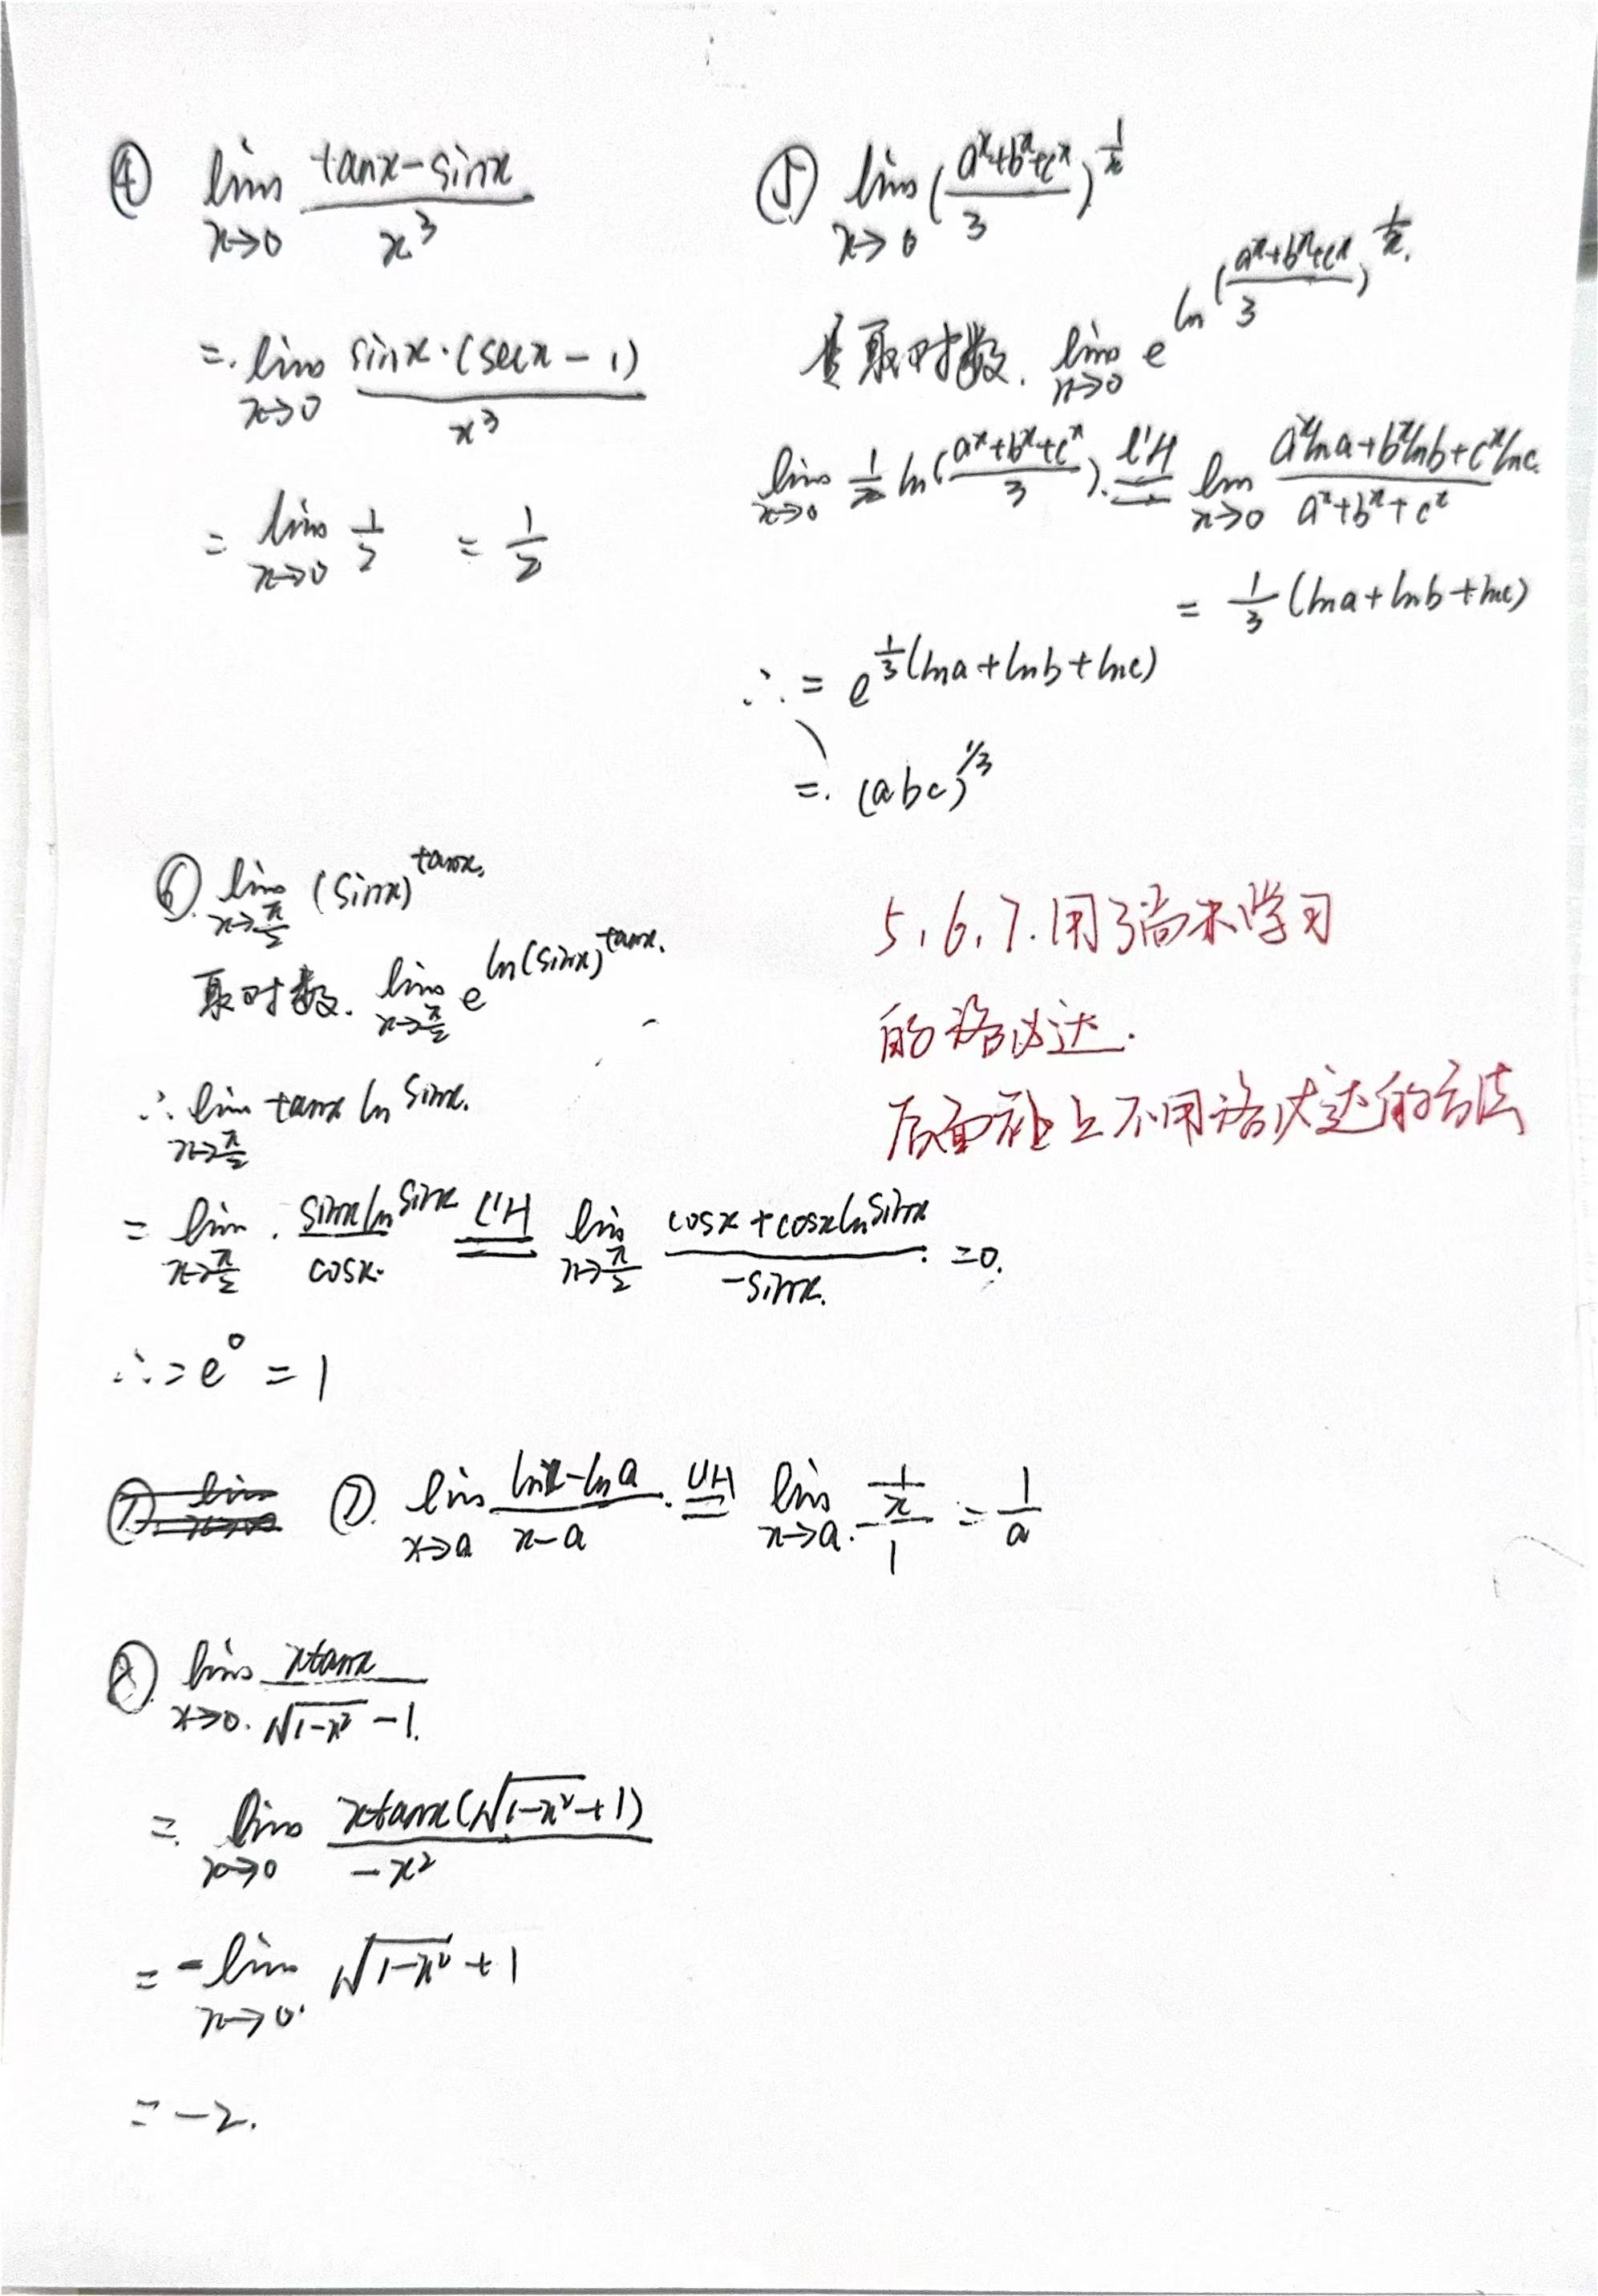 ④ lim x→0 (tanx-sinx)/x³
= lim x→0 sinx·(secx-1)/x³
= lim x→0 1/2 = 1/2
⑤ lim x→0 ((a^x+b^x+c^x)/3)^(1/x)
取对数. lim x→0 e^(ln((a^x+b^x+c^x)/3)^(1/x)).
lim x→0 1/x ln((a^x+b^x+c^x)/3). L'H= lim x→0 (a^x lna+b^x lnb+c^x lnc)/(a^x+b^x+c^x)
= 1/3 (lna+lnb+lnc)
∴ = e^(1/3(lna+lnb+lnc))
=. (abc)^(1/3)
⑥. lim x→π/2 (sinx)^(tanx).
取对数. lim x→π/2 e^(ln(sinx)^(tanx)).
∴ lim x→π/2 tanx ln sinx.
= lim x→π/2 · (sinx ln sinx)/cosx. L'H= lim x→π/2 (cosx+cosx ln sinx)/(-sinx). =0.
∴ = e^0 = 1
5、6、7.用了尚未学习
的洛必达.
后面补上不用洛必达的方法
⑦. lim x→a (lnx-lna)/(x-a). L'H= lim x→a. (1/x)/1 = 1/a
⑧. lim x→0. (xtanx)/(√(1-x²)-1).
=. lim x→0 (xtanx(√(1-x²)+1))/(-x²)
= -lim x→0. √(1-x²)+1
= -2.